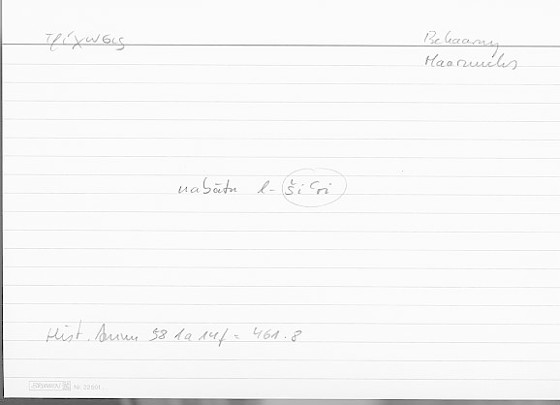 τρίχωσις
Behaarung
Haarwuchs
nabātu l-šiʿri
Hist. Anim 58 1a 14f = 461.8